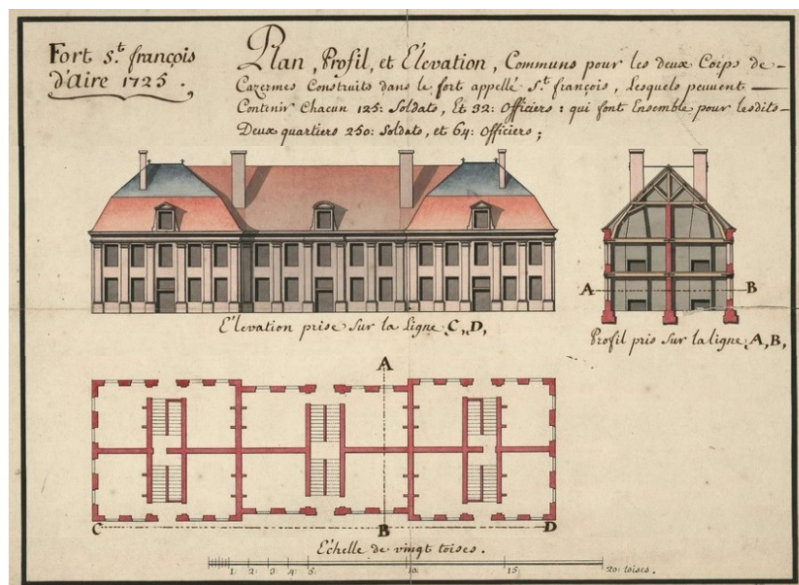 Fort S.t françois
d'Aire 1725.
Plan, Profil, et Elevation, Communs pour les deux Corps de
Cazermes Construits dans le fort appellé S.t françois, Lesquels peuvent
Contenir Chacun 125: Soldats, Et 32: Officiers: qui font Ensemble pour lesdits
Deux quartiers 250: Soldats, et 64: Officiers;
Elevation prise sur la Ligne C,,D,
A B
Profil pris sur la ligne A,B,
A
C B D
Echelle de vingt toises.
1. 2. 3. 4. 5. 10. 15. 20. toises.